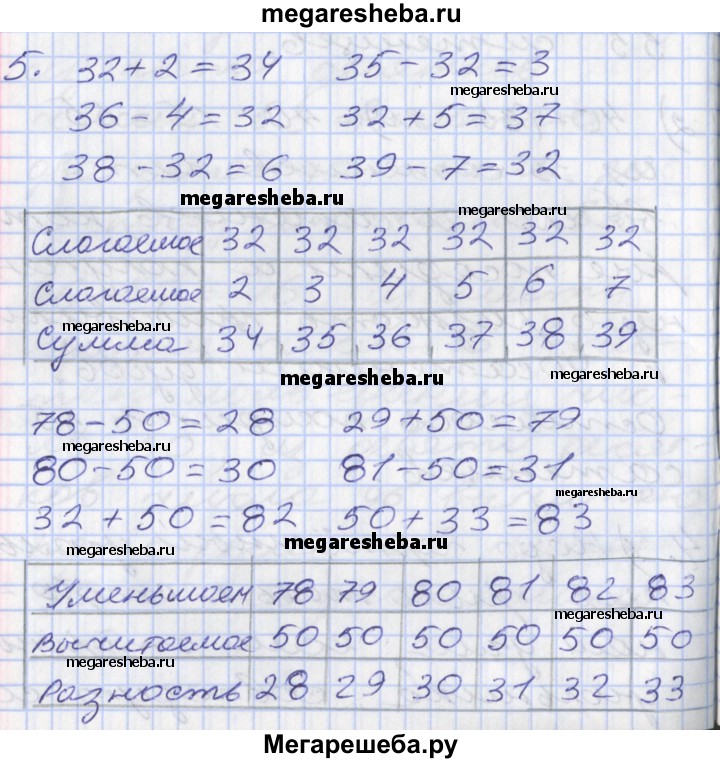 megaresheba.ru
5. 32+2=34 35-32=3
megaresheba.ru
36-4=32 32+5=37
38-32=6 39-7=32
megaresheba.ru megaresheba.ru
Слагаемое 32 32 32 32 32 32
Слагаемое 2 3 4 5 6 7
megaresheba.ru
Сумма 34 35 36 37 38 39
megaresheba.ru megaresheba.ru
78-50=28 29+50=79
megaresheba.ru
80-50=30 81-50=31
megaresheba.ru
32+50=82 50+33=83
megaresheba.ru megaresheba.ru
Уменьшаем 78 79 80 81 82 83
megaresheba.ru
Вычитаемое 50 50 50 50 50 50
megaresheba.ru
Разность 28 29 30 31 32 33
Мегарешеба.ру